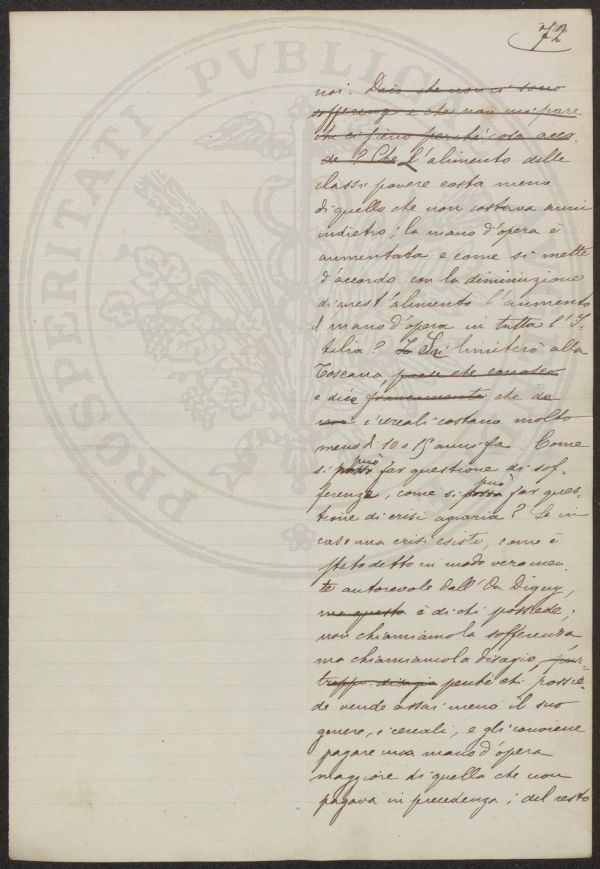 72
PROSPERITATI PVBLICAE
noi. Dico che non ci sono
sofferenze e che non mi pare
che ci siano perché cosa acca-
de? Che L'alimento delle
classi povere costa meno
di quello che non costava anni
indietro; la mano d'opera è
aumentata e come si mette
d'accordo con la diminuzione
di quest'alimento l'aumento
d mano d'opera in tutta l'I-
talia? Si limiterò alla
Toscana, paese che conosco
e dice francamente che da
i cereali costano molto
meno di 10 o 15 anni fa. Come
si può far questione di sof-
ferenze, come si può far ques-
tione di crisi agraria? Se in
caso una crisi esiste, come è
stato detto in modo veramen-
te autorevole dall'On Digny,
ma questa è di chi possede;
non chiamiamola sofferenza
ma chiamiamola disagio, pur-
troppo disagio perché chi possie-
de vende assai meno il suo
genere, i cereali, e gli conviene
pagare una mano d'opera
maggiore di quella che non
pagava in precedenza; del resto